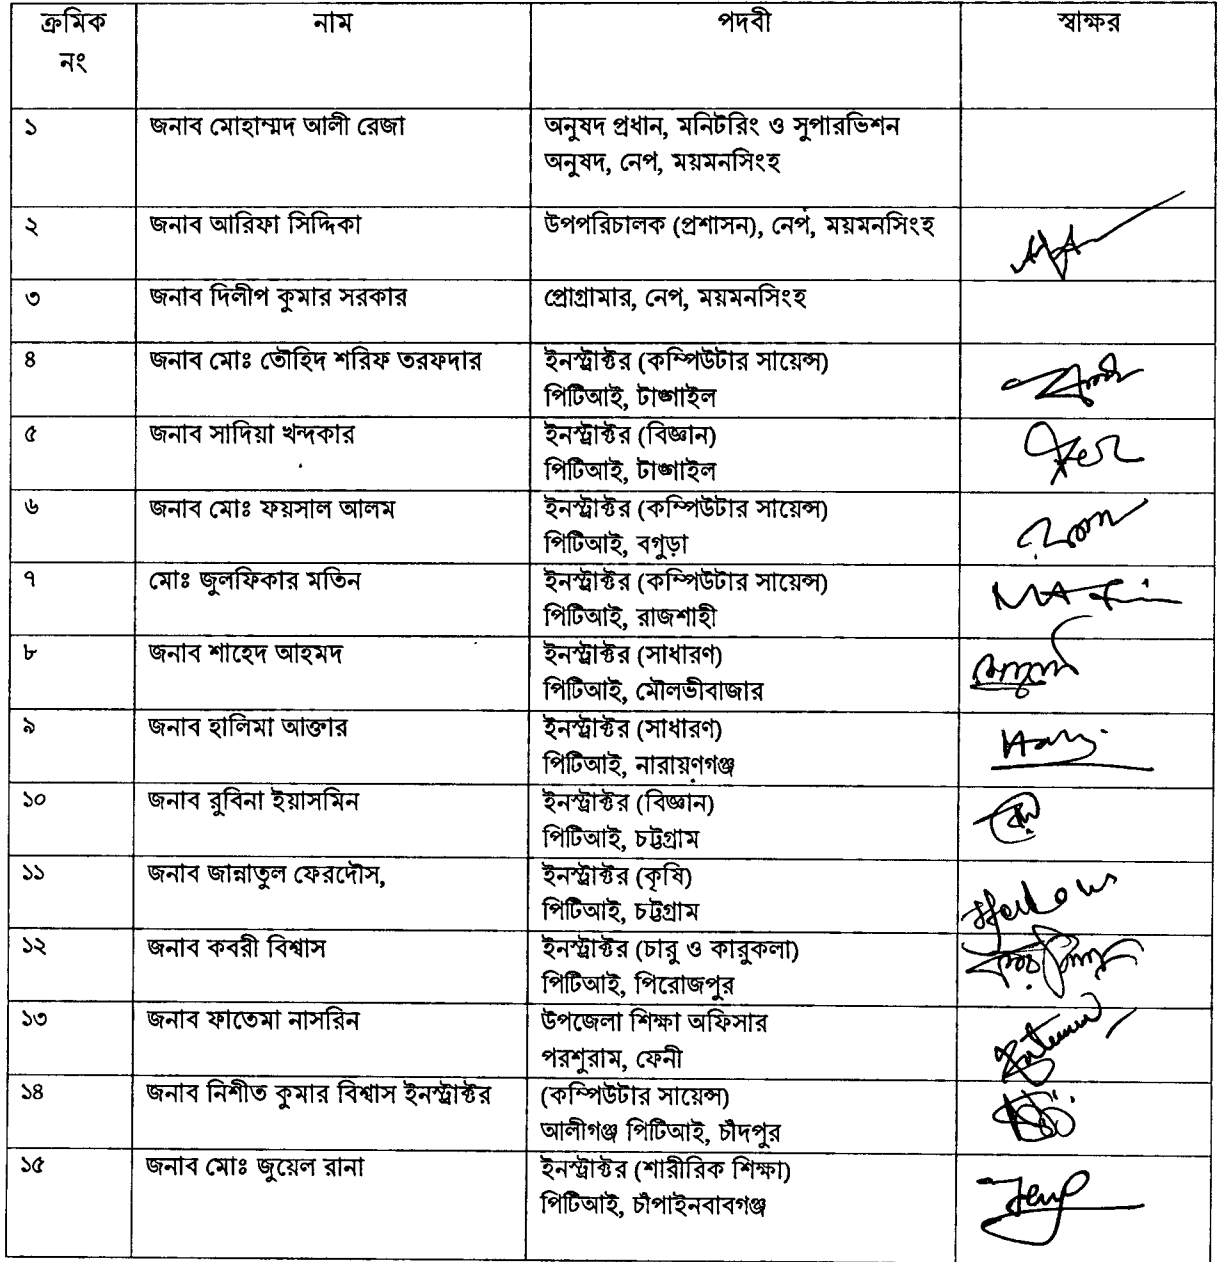 ক্রমিক নাম পদবী স্বাক্ষর
নং
১ জনাব মোহাম্মদ আলী রেজা অনুষদ প্রধান, মনিটরিং ও সুপারভিশন
অনুষদ, নেপ, ময়মনসিংহ
২ জনাব আরিফা সিদ্দিকা উপপরিচালক (প্রশাসন), নেপ, ময়মনসিংহ
৩ জনাব দিলীপ কুমার সরকার প্রোগ্রামার, নেপ, ময়মনসিংহ
৪ জনাব মোঃ তৌহিদ শরিফ তরফদার ইনস্ট্রাক্টর (কম্পিউটার সায়েন্স)
পিটিআই, টাঙ্গাইল
৫ জনাব সাদিয়া খন্দকার ইনস্ট্রাক্টর (বিজ্ঞান)
পিটিআই, টাঙ্গাইল
৬ জনাব মোঃ ফয়সাল আলম ইনস্ট্রাক্টর (কম্পিউটার সায়েন্স)
পিটিআই, বগুড়া
৭ মোঃ জুলফিকার মতিন ইনস্ট্রাক্টর (কম্পিউটার সায়েন্স)
পিটিআই, রাজশাহী
৮ জনাব শাহেদ আহমদ ইনস্ট্রাক্টর (সাধারণ)
পিটিআই, মৌলভীবাজার
৯ জনাব হালিমা আক্তার ইনস্ট্রাক্টর (সাধারণ)
পিটিআই, নারায়ণগঞ্জ
১০ জনাব রুবিনা ইয়াসমিন ইনস্ট্রাক্টর (বিজ্ঞান)
পিটিআই, চট্টগ্রাম
১১ জনাব জান্নাতুল ফেরদৌস, ইনস্ট্রাক্টর (কৃষি)
পিটিআই, চট্টগ্রাম
১২ জনাব কবরী বিশ্বাস ইনস্ট্রাক্টর (চারু ও কারুকলা)
পিটিআই, পিরোজপুর
১৩ জনাব ফাতেমা নাসরিন উপজেলা শিক্ষা অফিসার
পরশুরাম, ফেনী
১৪ জনাব নিশীত কুমার বিশ্বাস ইনস্ট্রাক্টর (কম্পিউটার সায়েন্স)
আলীগঞ্জ পিটিআই, চাঁদপুর
১৫ জনাব মোঃ জুয়েল রানা ইনস্ট্রাক্টর (শারীরিক শিক্ষা)
পিটিআই, চাঁপাইনবাবগঞ্জ